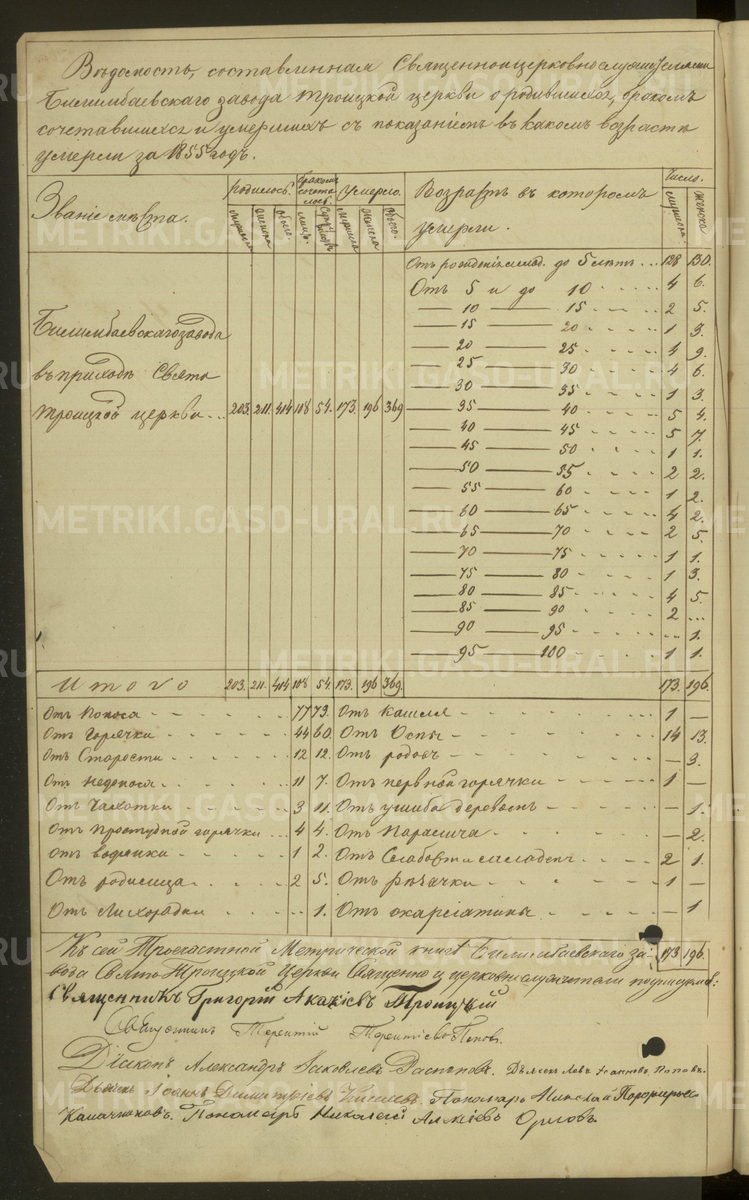 Вѣдомость, составленная Священноицерковнослужителями
Билимбаевскаго завода Троицкой церкви о родившихся, бракомъ
сочетавшихся и умершихъ съ показаніемъ въ какомъ возрастѣ
умерли за 1855 годъ.
Званіе мѣста.
родилось.
бракомъ сочета лось.
умерло.
Возрастъ въ которомъ умерли.
Число.
мужеска женска обоего лицъ мужеска женска обоего. мужеска женска
Отъ рожденія млад. до 5 лѣтъ ... 128 130.
Отъ 5 и до 10 4 6.
10 15 2 5.
15 20 1 3.
20 25 4 9.
25 30 4 6.
30 35 1 3.
35 40 5 4.
40 45 5 7.
45 50 1 1.
50 55 2 2.
55 60 1 2.
60 65 4 2.
65 70 2 5.
70 75 1 1.
75 80 1 3.
80 85 4 5.
85 90 2 ...
90 95 ... 1.
95 100 1 1.
Билимбаевскагозавода
въ приходѣ Свято
Троицкой церкви ... 203. 211. 414 108 54. 173. 196 369
Итого 203. 211. 414 108 54. 173. 196 369. 173. 196.
Отъ Поноса 77 73. Отъ Кашля 1 —
Отъ Горячки 44 60. Отъ Оспы 14 13.
Отъ Старости 12 12. Отъ родовъ — 3.
Отъ Недоноса 11 7. Отъ нервной горячки 1 —
Отъ Чахотки 3 11. Отъ ушиба деревомъ — 1.
Отъ Простудной горячки 4 4. Отъ Паралича — 2.
Отъ водянки 1 2. Отъ Слабости младенч. 2 1.
Отъ родимца 2 5. Отъ рѣзачки 1 —
Отъ Лихорадки 1. Отъ скарлатины — 1
173 196.
Къ сей Троечастной Метрической книгѣ Билимбаевскаго за-
вода Свято Троицкой Церкви Священно и церковнослужители подписуемся:
Священникъ Григорій Акакіевъ Троицкій
Священникъ Терентій Терентіевъ Поповъ.
Діаконъ Александръ Іаковлевъ
Дьячекъ Іоаннъ Димитріевъ Киселевъ. Пономарь Николай Порфирьевъ
Пономарь Николай Орловъ.
METRIKI.GASO-URAL.RU
METRIKI.GASO-URAL.RU
METRIKI.GASO-URAL.RU
METRIKI.GASO-URAL.RU
METRIKI.GASO-URAL.RU
METRIKI.GASO-URAL.RU
METRIKI.GASO-URAL.RU
METRIKI.GASO-URAL.RU